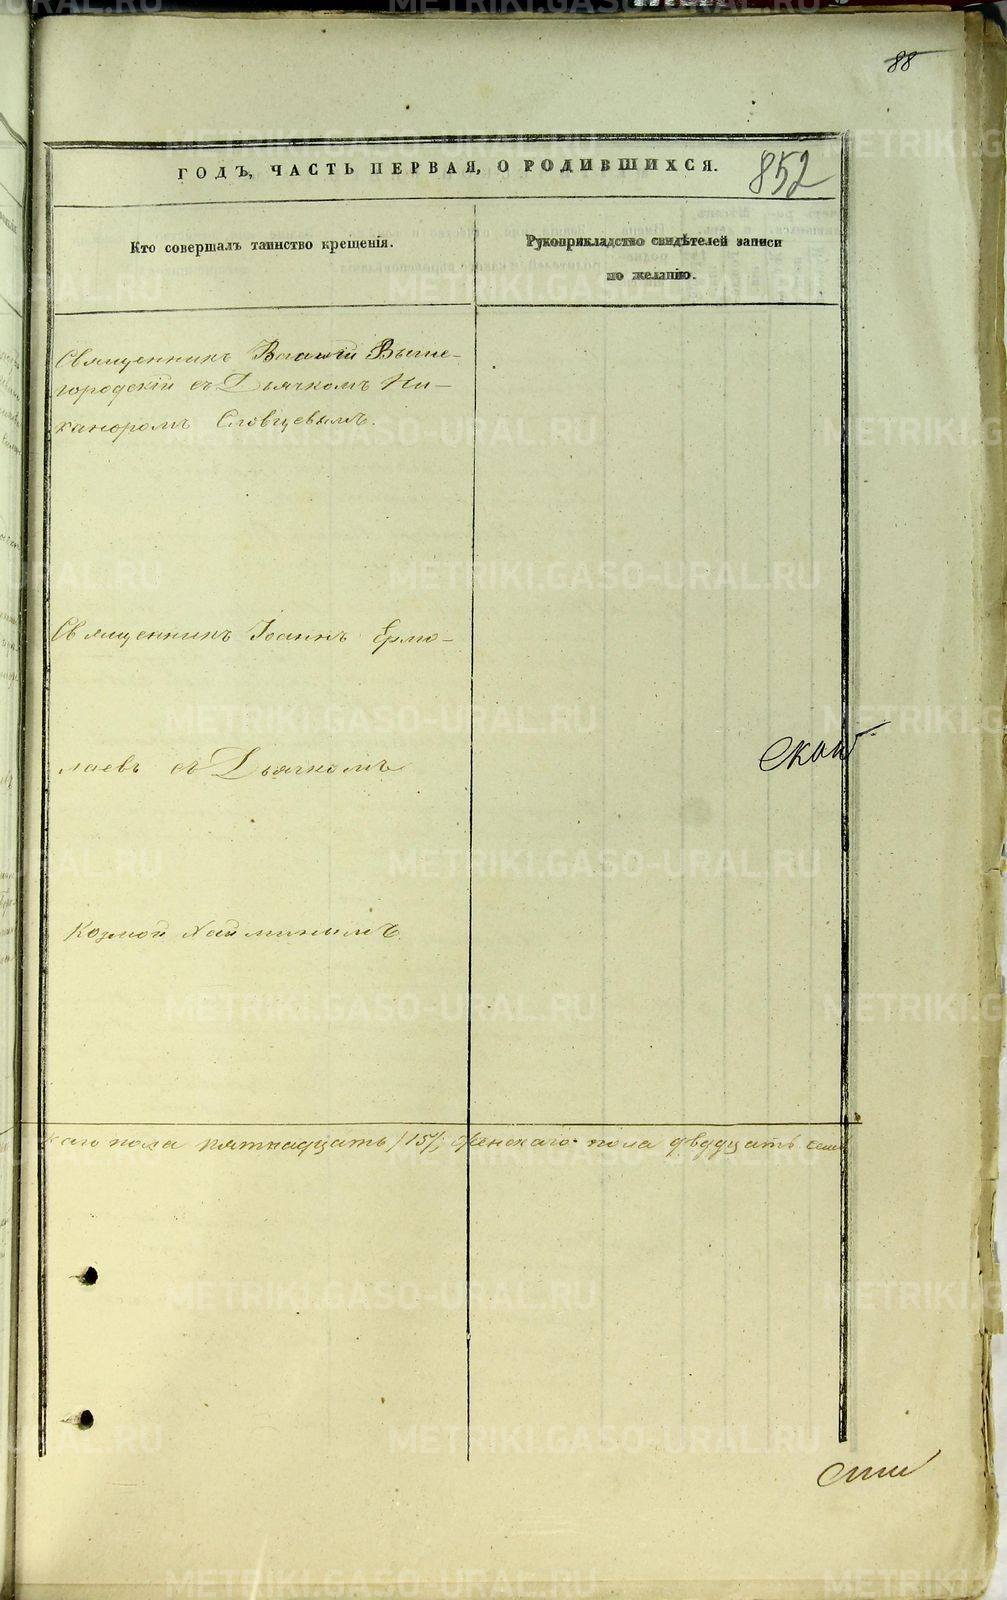 88
ГОДЪ, ЧАСТЬ ПЕРВАЯ, О РОДИВШИХСЯ.
852
Кто совершалъ таинство крещенія.
Рукоприкладство свидѣтелей записи
по желанію.
Священникъ Василій Выше-
городскій съ Дьячкомъ Ни-
каноромъ Словцевымъ.
Священникъ Іоаннъ Ермо-
лаевъ съ Дьячкомъ
Козмой Хайминымъ
каго пола пятнадцать /15/; женскаго пола двадцать семь
METRIKI.GASO-URAL.RU